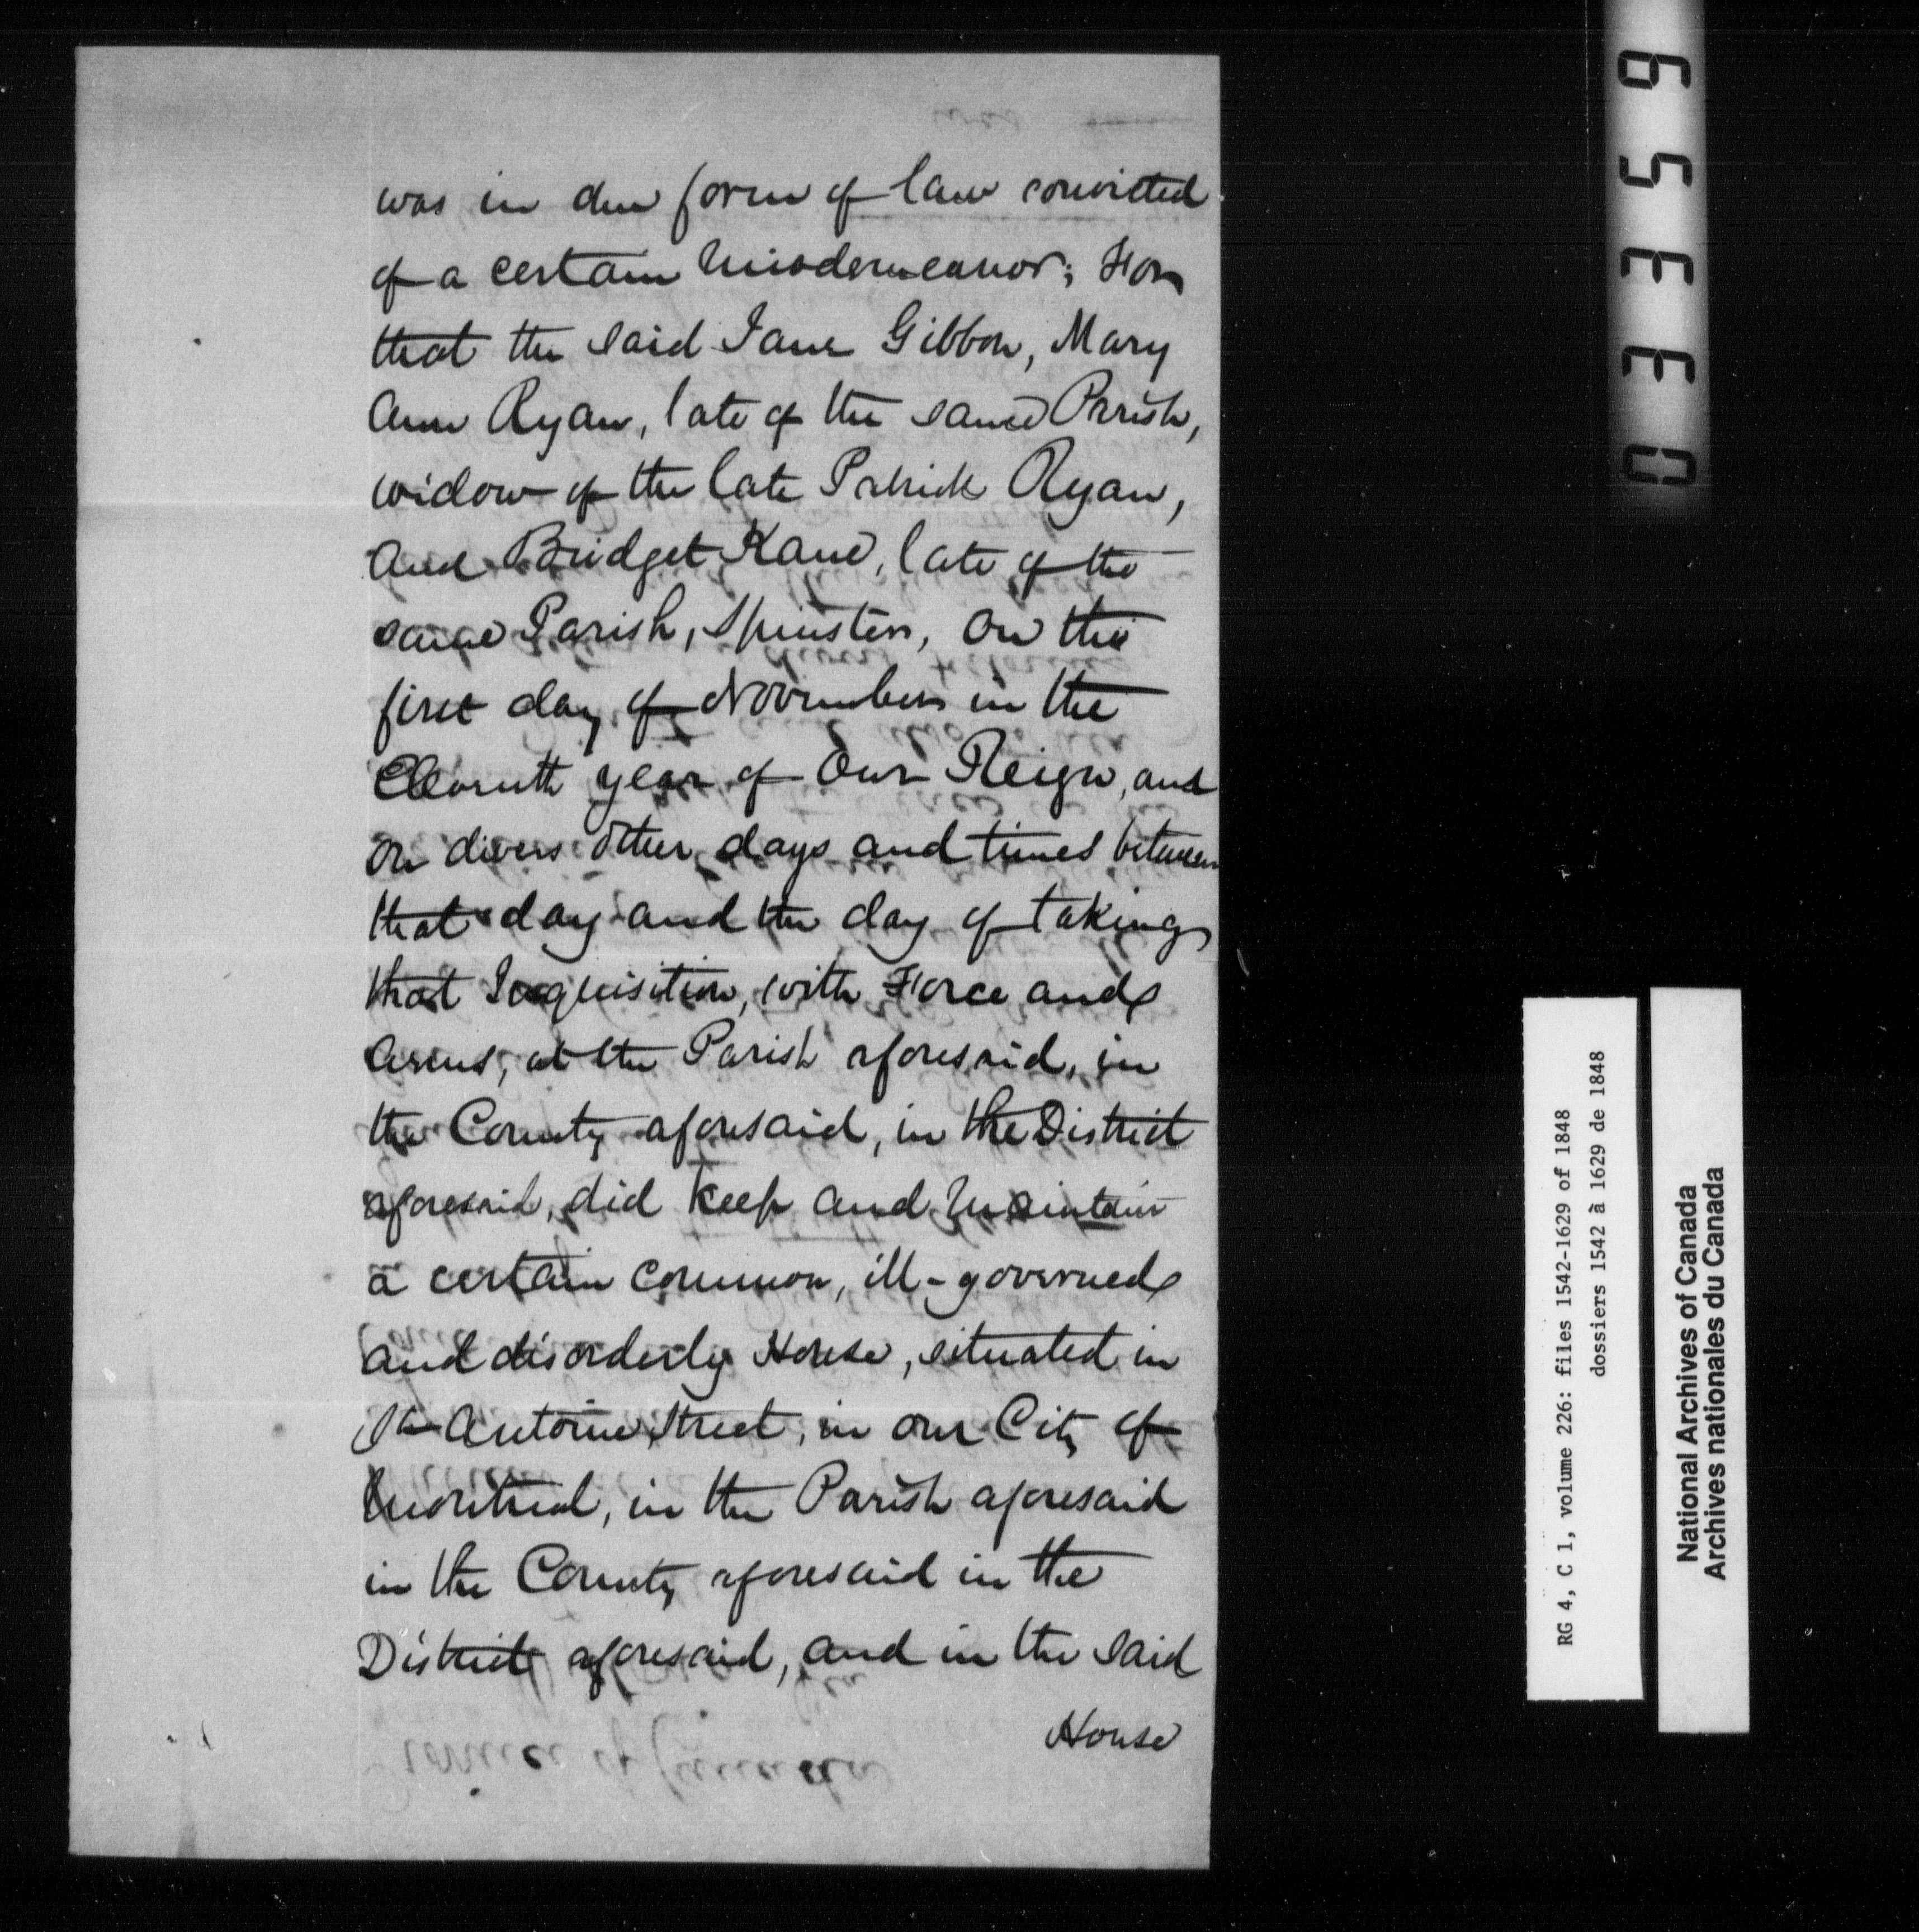 was in due form of law convicted
of a certain Misdemeanor; For
that the said Jane Gibbon, Mary
Ann Ryan, late of the same Parish,
widow of the late Patrick Ryan,
And Bridget Kane, late of the
same Parish, Spinster, on the
first day of November in the
Eleventh year of Our Reign, and
on divers other days and times between
that day and the day of taking
that Inquisition, with Force and
Arms, at the Parish aforesaid, in
the County aforesaid, in the District
aforesaid, did keep and Maintain
a certain common, ill-governed
and disorderly House, situated in
St Antoine Street, in our City of
Montreal, in the Parish aforesaid
in the County aforesaid in the
District aforesaid, and in the said
House
03359
RG 4, C 1, volume 226: files 1542-1629 of 1848
dossiers 1542 à 1629 de 1848
National Archives of Canada
Archives nationales du Canada